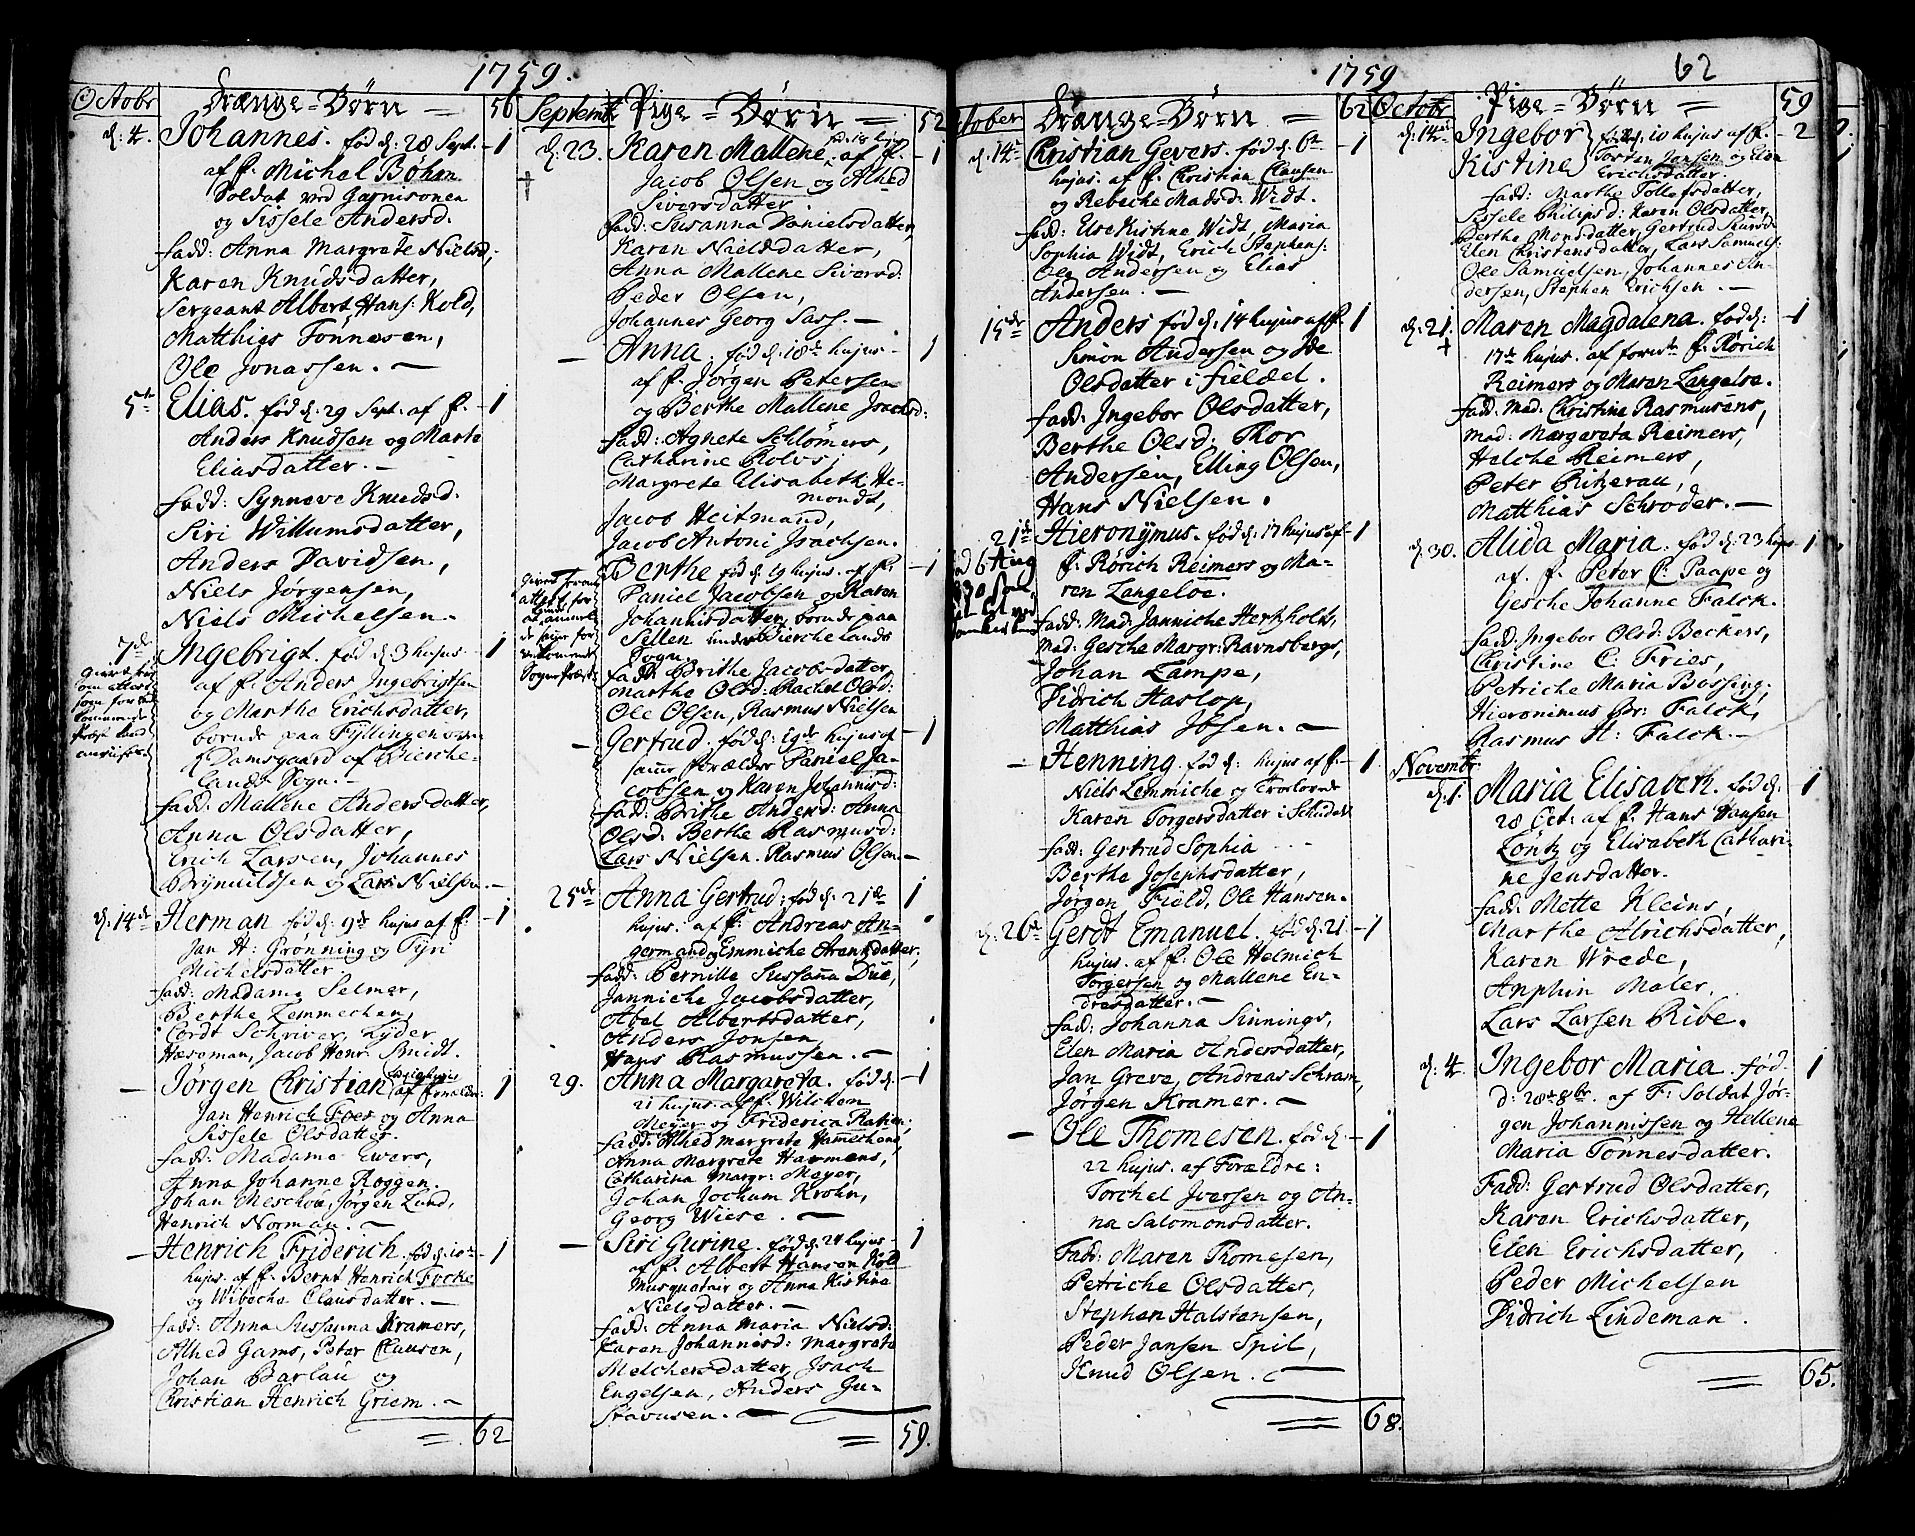 1759.
Octobr
Drænge-Børn
56
d: 4.
Johannes. fød d: 28 Sept.
1
af f. Michel Böhan
Soldat ved Garnisonen
og Sissele Andersd:
fadd: Anna Margrete Nielsd:,
Karen Knudsdatter,
Sergeant Albert Hans: Kold,
Matthias Tönnesen,
Ole Jonassen.
5te
Elias. fød d: 29 Sept: af f.
1
Anders Knudsen og Marte
Eliasdatter.
fadd: Synneve Knudsd:
Siri Willumsdatter,
Anders Davidsen,
Niels Jørgensen,
Niels Michelsen.
7de
Ingebrigt. fød d: 3 hujus
1
af f. Anders Ingebrigtsen
og Marthe Erichsdatter,
boende paa Fyllingen
Damsgaard af Bierche-
lands Sogn.
fadd: Mallene Andersdatter,
Anna Olsdatter,
Erich Larsen, Johannes
Brynildsen og Lars Nielsen.
d: 14de
Herman fød d: 9de hujus af f:
1
Jan H: Grönning og Syn
Michelsdatter
fadd: Madame Selmer,
Berthe Lemmechen,
Cordt Schriver, Lyder
Hæseman, Jacob Henr: Smidt.
Jørgen Christian
1
Jan Henrich Foes og Anna
Sissele Olsdatter.
fadd: Madame Ewers,
Anna Johanne Roggen.
Johan Meschöe, Jørgen Lund,
Henrich Norman.
Henrich Friderich. fød d: 10de
1
hujus. af f. Bernt Henrich Focke
og Wibeche Clausdatter.
fadd: Anna Sussanna Kramers,
Alhed Gams, Peter Clausen,
Johan Barlau og
Christian Henrich Griem.
62
Septembr
Pige-Børn
52
d: 23.
Karen Mallene, af f.
1
Jacob Olsen og Alhed
Siversdatter.
fadd: Susanna Danielsdatter,
Karen Nielsdatter,
Anna Mallene Siversd:
Peder Olsen,
Johannes Georg Sass.
Anna. fød d: 18de hujus
1
af f. Jørgen Petersen
og Berthe Mallene Isachsd:
fadd: Agnete Schlömers,
Catharine Rolvs,
Margrete Elisabeth He-
mondt,
Jacob Heitmand,
Jacob Antoni Isachsen.
Berthe fød d: 19 hujus. af f:
1
Daniel Jacobsen og Karen
Johannisdatter, boende paa
Selten under Bierchelands
Sogn.
fadd: Brithe Jacobsdatter,
Marthe Olsd: Rachel Olsd:
Ole Olsen, Rasmus Nielsen
Gertrud. fød d: 19de hujus af
1
samme forældre Daniel Ja-
cobsen og Karen Johannisd:
fadd: Brithe Andersd: Anna
Olsd: Berthe Rasmusd:
Lars Nielsen. Rasmus Olsen.
25de
Anna Gertrud: fød d: 21de
1
hujus. af f: Andreas An-
germand og Emmiche Arentsdatter,
fadd: Pernille Sussanna Due,
Janniche Jacobsdatter,
Abel Albertsdatter,
Anders Jonsen,
Hans Rasmussen.
29.
Anna Margareta. fød d:
1
21 hujus. af f. Wilcken
Meyer og Friderica Ratien.
fadd: Alhed Margrete Hammechens,
Anna Margrete Harmens,
Catharina Margr: Meyer,
Johan Jochum Krohn,
Georg Wiese.
Siri Gurine. fød d: 24 hujus
1
af f. Albert Hansen Kold
Musquatair og Anna Kistina
Nielsdatter.
fadd: Anna Maria Nielsd:
Karen Johannisd: Margrete
Melchersdatter, Isach
Engelsen, Anders Gu-
stavusen.
59.
1759
62
October
Drænge-Børn
62
d: 14de
Christian Gevers. fød d: 6te
1
hujus. af f. Christian Clausen
og Rebeche Madsd: Widt.
fadd: Else Kistine Widt, Maria
Sophia Widt, Erich Stephens:
Ole Andersen og Elias
Andersen.
15de
Anders fød d: 14 hujus af f.
1
Simon Andersen og Ide
Olsdatter i Fieldet.
fadd: Ingebor Olsdatter,
Berthe Olsd: Thor
Andersen, Elling Olsen,
Hans Nielsen.
21de
Hieronymus. fød d: 17 hujus af
1
f. Rörich Reimers og Ma-
ren Langeloe.
fadd: Mad: Janniche Herkholt,
Mad: Gesche Margr: Ravnsbergs,
Johan Lampe,
Didrich Haslop,
Matthias Ibsen.
Henning. fød d: hujus af f.
1
Niels Lemmiche og Troelovede
Karen Torgersdatter i Skudevi
fadd: Gertrud Sophia
Berthe Josephsdatter,
Jørgen Fiöld, Ole Hansen.
d: 26de
Gerdt Emanuel. fød d: 21
1
hujus. af f. Ole Helmich
Torgersen og Mallene En-
dresdatter.
fadd: Johanna Sinnings,
Elen Maria Andersdatter,
Jan Greve, Andreas Schram,
Jørgen Kramer.
Ole Thomesen. fød d:
1
22 hujus. af Forældre:
Torchel Iversen og An-
na Salomonsdatter.
Fadd: Maren Thomesen,
Petriche Olsdatter,
Stephen Halstensen,
Peder Jansen Spil,
Knud Olsen.
68.
Octobr
Pige-Børn
59
d: 14de
Ingebor
Kistine
2
Torsten Jansen og Elen
Erichsdatter.
fadd: Marthe Tollefsdatter,
Sissele Philipsd: Karen Olsdatter,
Berthe Monsdatter, Gertrud Skursd:
Elen Christensdatter, Lars Samuels:
Ole Samuelsen, Johannes An-
dersen, Stephen Erichsen.
d: 21.
Maren Magdalena. fød d:
1
17de hujus. af forrn f. Rörich
Reimers og Maren Langeloe.
fadd: Mad: Christine Rasmusens,
Mad: Margareta Reimers,
Helche Reimers,
Peter Pützerau,
Matthias Schröder.
d: 30.
Alida Maria. fød d: 23 hujus
1
af. f. Peter C. Paape og
Gesche Johanne Falck.
fadd: Ingebor Olsd: Beckers,
Christine C: Fries,
Petriche Maria Bossing,
Hieronimus Br: Falck,
Rasmus H: Falck.
Novembr.
d: 1.
Maria Elisabeth. fød d:
1
28 Oct: af f. Hans Hansen
Löntz og Elisabeth Cathari-
ne Jensdatter.
fadd: Mette Kleins,
Marthe Alrichsdatter,
Karen Wrede,
Anphin Maler,
Lars Larsen Ribe.
d: 4.
Ingebor Maria. fød
1
d: 28de 8br. af F: Soldat Jör-
gen Johannissen og Hellene
Maria Tönnesdatter.
Fadd: Gertrud Olsdatter,
Karen Erichsdatter,
Elen Erichsdatter,
Peder Michelsen
Didrich Lindeman.
65.